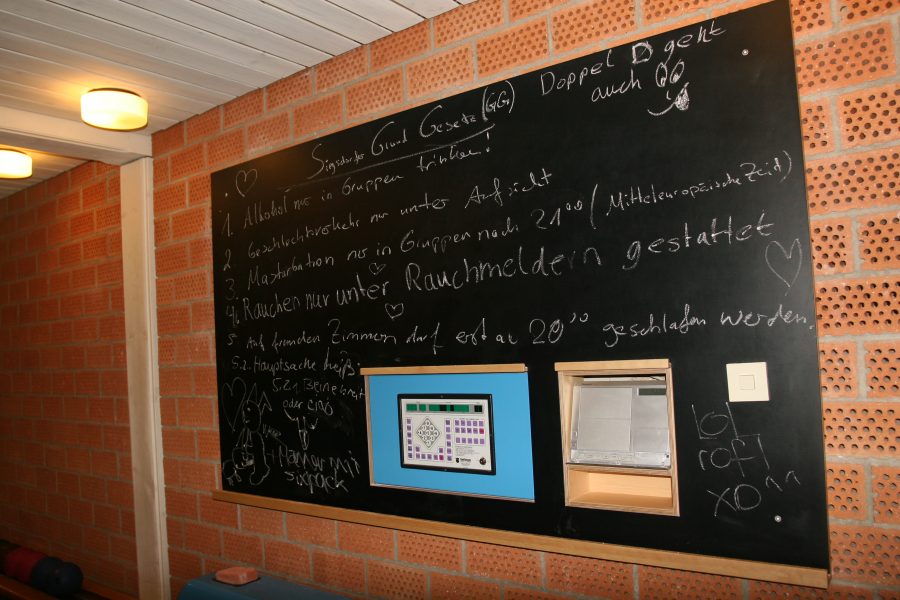 Singsdorfer Grund Gesetz (GG)
Doppel D geht
auch
1. Alkohol nur in Gruppen trinken!
2. Geschlechtverkehr nur unter Aufsicht
3. Masturbation nur in Gruppen nach 21°° (Mitteleuropäische Zeit)
4. Rauchen nur unter Rauchmeldern gestattet
5. Auf fremden Zimmern darf erst ab 20°° geschlafen werden.
5.2. Hauptsache heiß
5.2.1 Beine breit
oder ciao
+ Männer mit
sixpack
lol
rofl
XD^^